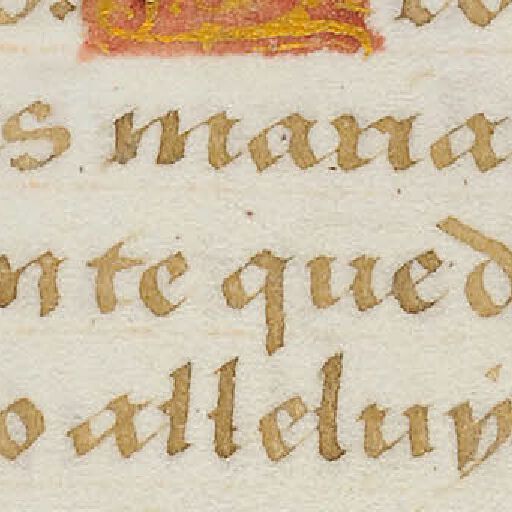 s mana
nte qued
o alleluy